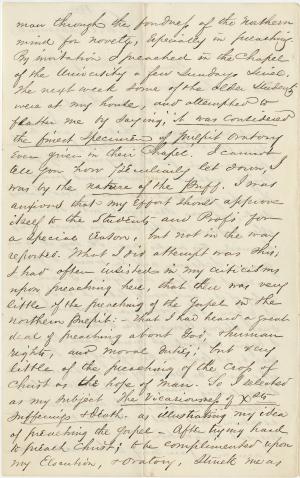 man through the fondness of the northern
mind for novelty, especially in preaching.
By invitation I preached in the Chapel
of the University a few Sundays since.
The next week some of the older Students
were at my house, and attempted to
flatter me by saying, it was considered
the finest Specimen of Pulpit Oratory
ever given in their Chapel. I cannot
tell you how peculiarly let down I
was by the nature of the Puff. I was
anxious that my effort should approve
itself to the Students and Profs. for
a special reason, but not in the way
reported. What I did attempt was this;
I had often insisted in my criticisms
upon preaching here, that there was very
little of the preaching of the Gospel in the
northern Pulpit:- that I had heard a great
deal of preaching about God, & human
rights, and moral duties; but very
little of the preaching of the Cross of
Christ as the hope of man. So I selected
as my subject The Vicariousness of Xts
Sufferings & Death. as illustrating my idea
of preaching the Gospel. After trying hard
to preach Christ; to be complemented upon
my Elocution, & Oratory, struck me as